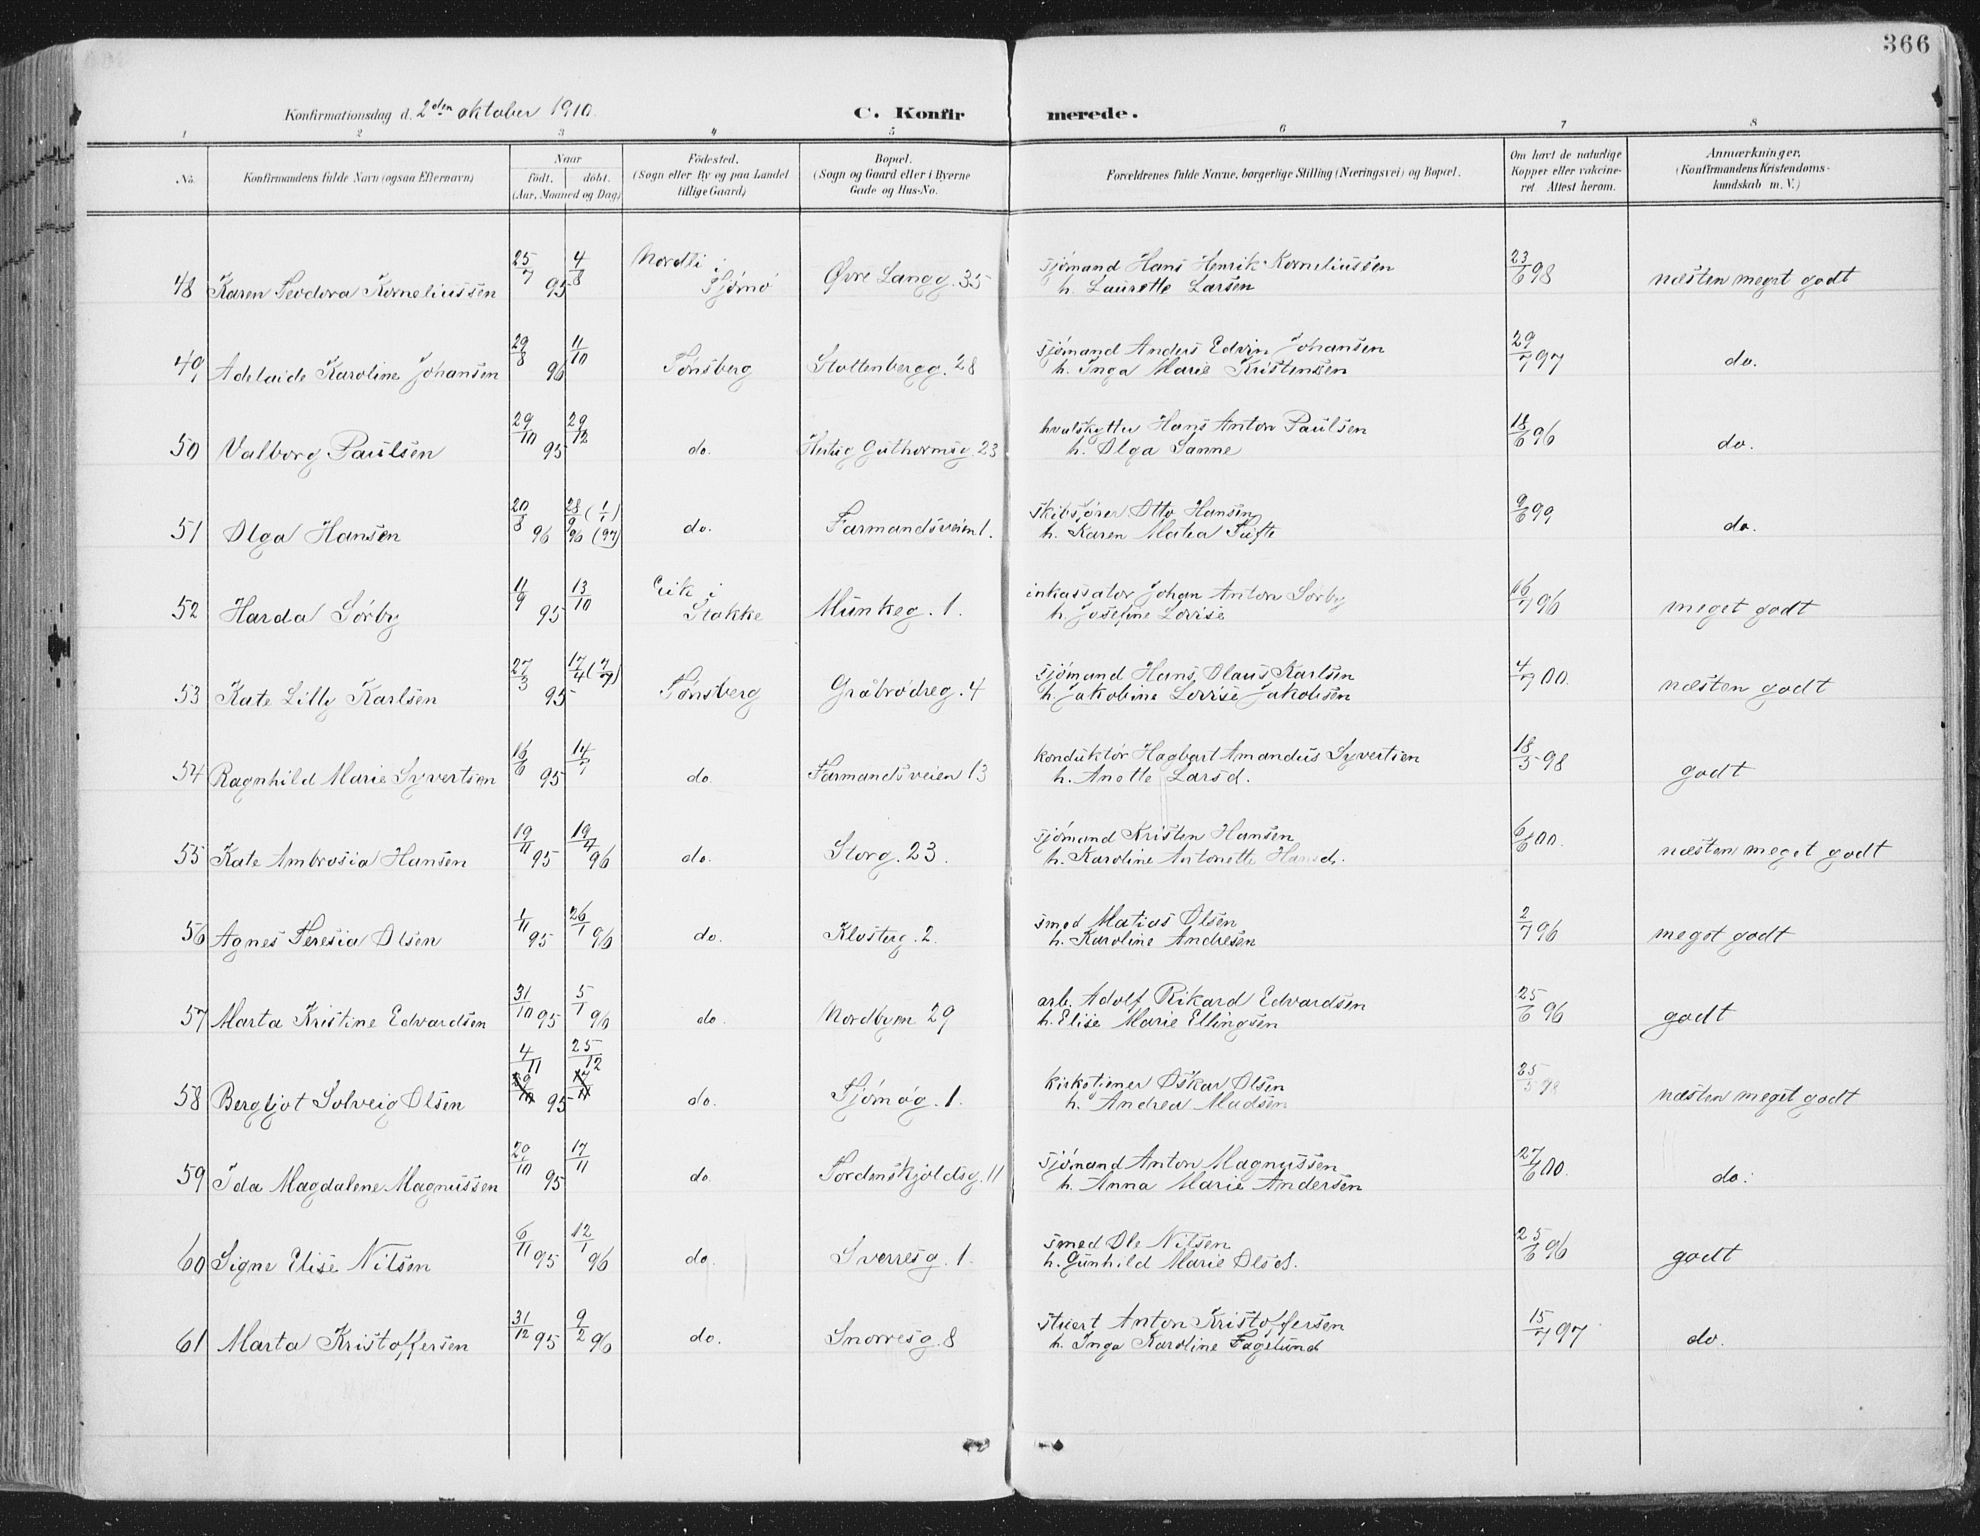 366
Konfirmationsdag d. 2den oktober 1910.
C. Konfirmerede.
1 2 3 4 5 6 7 8
No. Konfirmandens fulde Navn (ogsaa Efternavn)
Naar født. døbt. (Aar, Maaned og Dag)
Fødested. (Sogn eller By og paa Landet tillige Gaard)
Bopæl. (Sogn og Gaard eller i Byerne Gade og Hus-No.
Forældrenes fulde Navne, borgerlige Stilling (Næringsvei) og Bopæl.
Om havt de naturlige Kopper eller vakcineret. Attest herom.
Anmærkninger, (Konfirmandens Kristendomskundskab m. V.)
48 Karen Teodora Korneliussen 25/7 95 4/8 Nordli i Tjømø Øvre Langg. 35 sjømand Hans Henrik Korneliussen
h. Laurette Larsen 23/6 98 næsten meget godt
49 Adelaide Karoline Johansen 29/8 96 11/10 Tønsberg Stoltenbergg. 28 sjømand Anders Edvin Johansen
h. Inga Marie Kristensen 29/7 97 do.
50 Valborg Paulsen 29/10 95 29/12 do. Hertug Guthormsg. 23 hvalskytter Hans Anton Paulsen
h. Olga Sanne 18/6 96 do.
51 Olga Hansen 20/8 96 28/9 96 (1/1 97) do. Farmandsveien 1. skibsfører Otto Hansen
h. Karen Matea Tufte 9/6 99 do.
52 Harda Sørby 11/9 95 13/10 Eik i Stokke Munkeg. 1. inkassator Johan Anton Sørby
h. Josefine Lovise 16/7 96 meget godt
53 Kate Lilly Karlsen 27/3 95 17/4 (7/7) Tønsberg Gråbrødreg. 4 sjømand Hans Olaus Karlsen
h. Jakobine Lovise Jakobsen 4/7 00. næsten godt
54 Ragnhild Marie Syvertsen 16/6 95 14/7 do. Farmandsveien 13 konduktør Hagbart Amandus Syvertsen
h. Anette Larsd. 18/5 98 godt
55 Kate Ambrosia Hansen 19/11 95 19/4 96 do. Storg. 23. sjømand Kristen Hansen
h. Karoline Antonette Hansd. 6/6 00. næsten meget godt
56 Agnes Teresia Olsen 1/11 95 26/1 96 do. Klosterg. 2. smed Matias Olsen
h. Karoline Andresen 2/7 96 meget godt
57 Marta Kristine Edvardsen 31/10 95 5/1 96 do. Nordbyen 29 arb. Adolf Rikard Edvardsen
h. Elise Marie Ellingsen 25/6 96 godt
58 Bergljot Solveig Olsen 4/11 29/10 95 25/12 17/11 do. Tjømøg. 1. kirketjener Oskar Olsen
h. Andrea Madsen 25/5 98 næsten meget godt
59 Ida Magdalene Magnussen 20/10 95 17/11 do. Tordenskjoldsg. 11 sjømand Anton Magnussen
h. Anna Marie Andersen 27/6 00. do.
60 Signe Elise Nilsen 6/11 95 12/1 96 do. Sverresg. 1. smed Ole Nilsen
h. Gunhild Marie Olsd. 25/6 96 godt
61 Marta Kristoffersen 31/12 95 9/2 96 do. Snorresg. 8 stuert Anton Kristoffersen
h. Inga Karoline Fagelund 15/7 97 do.